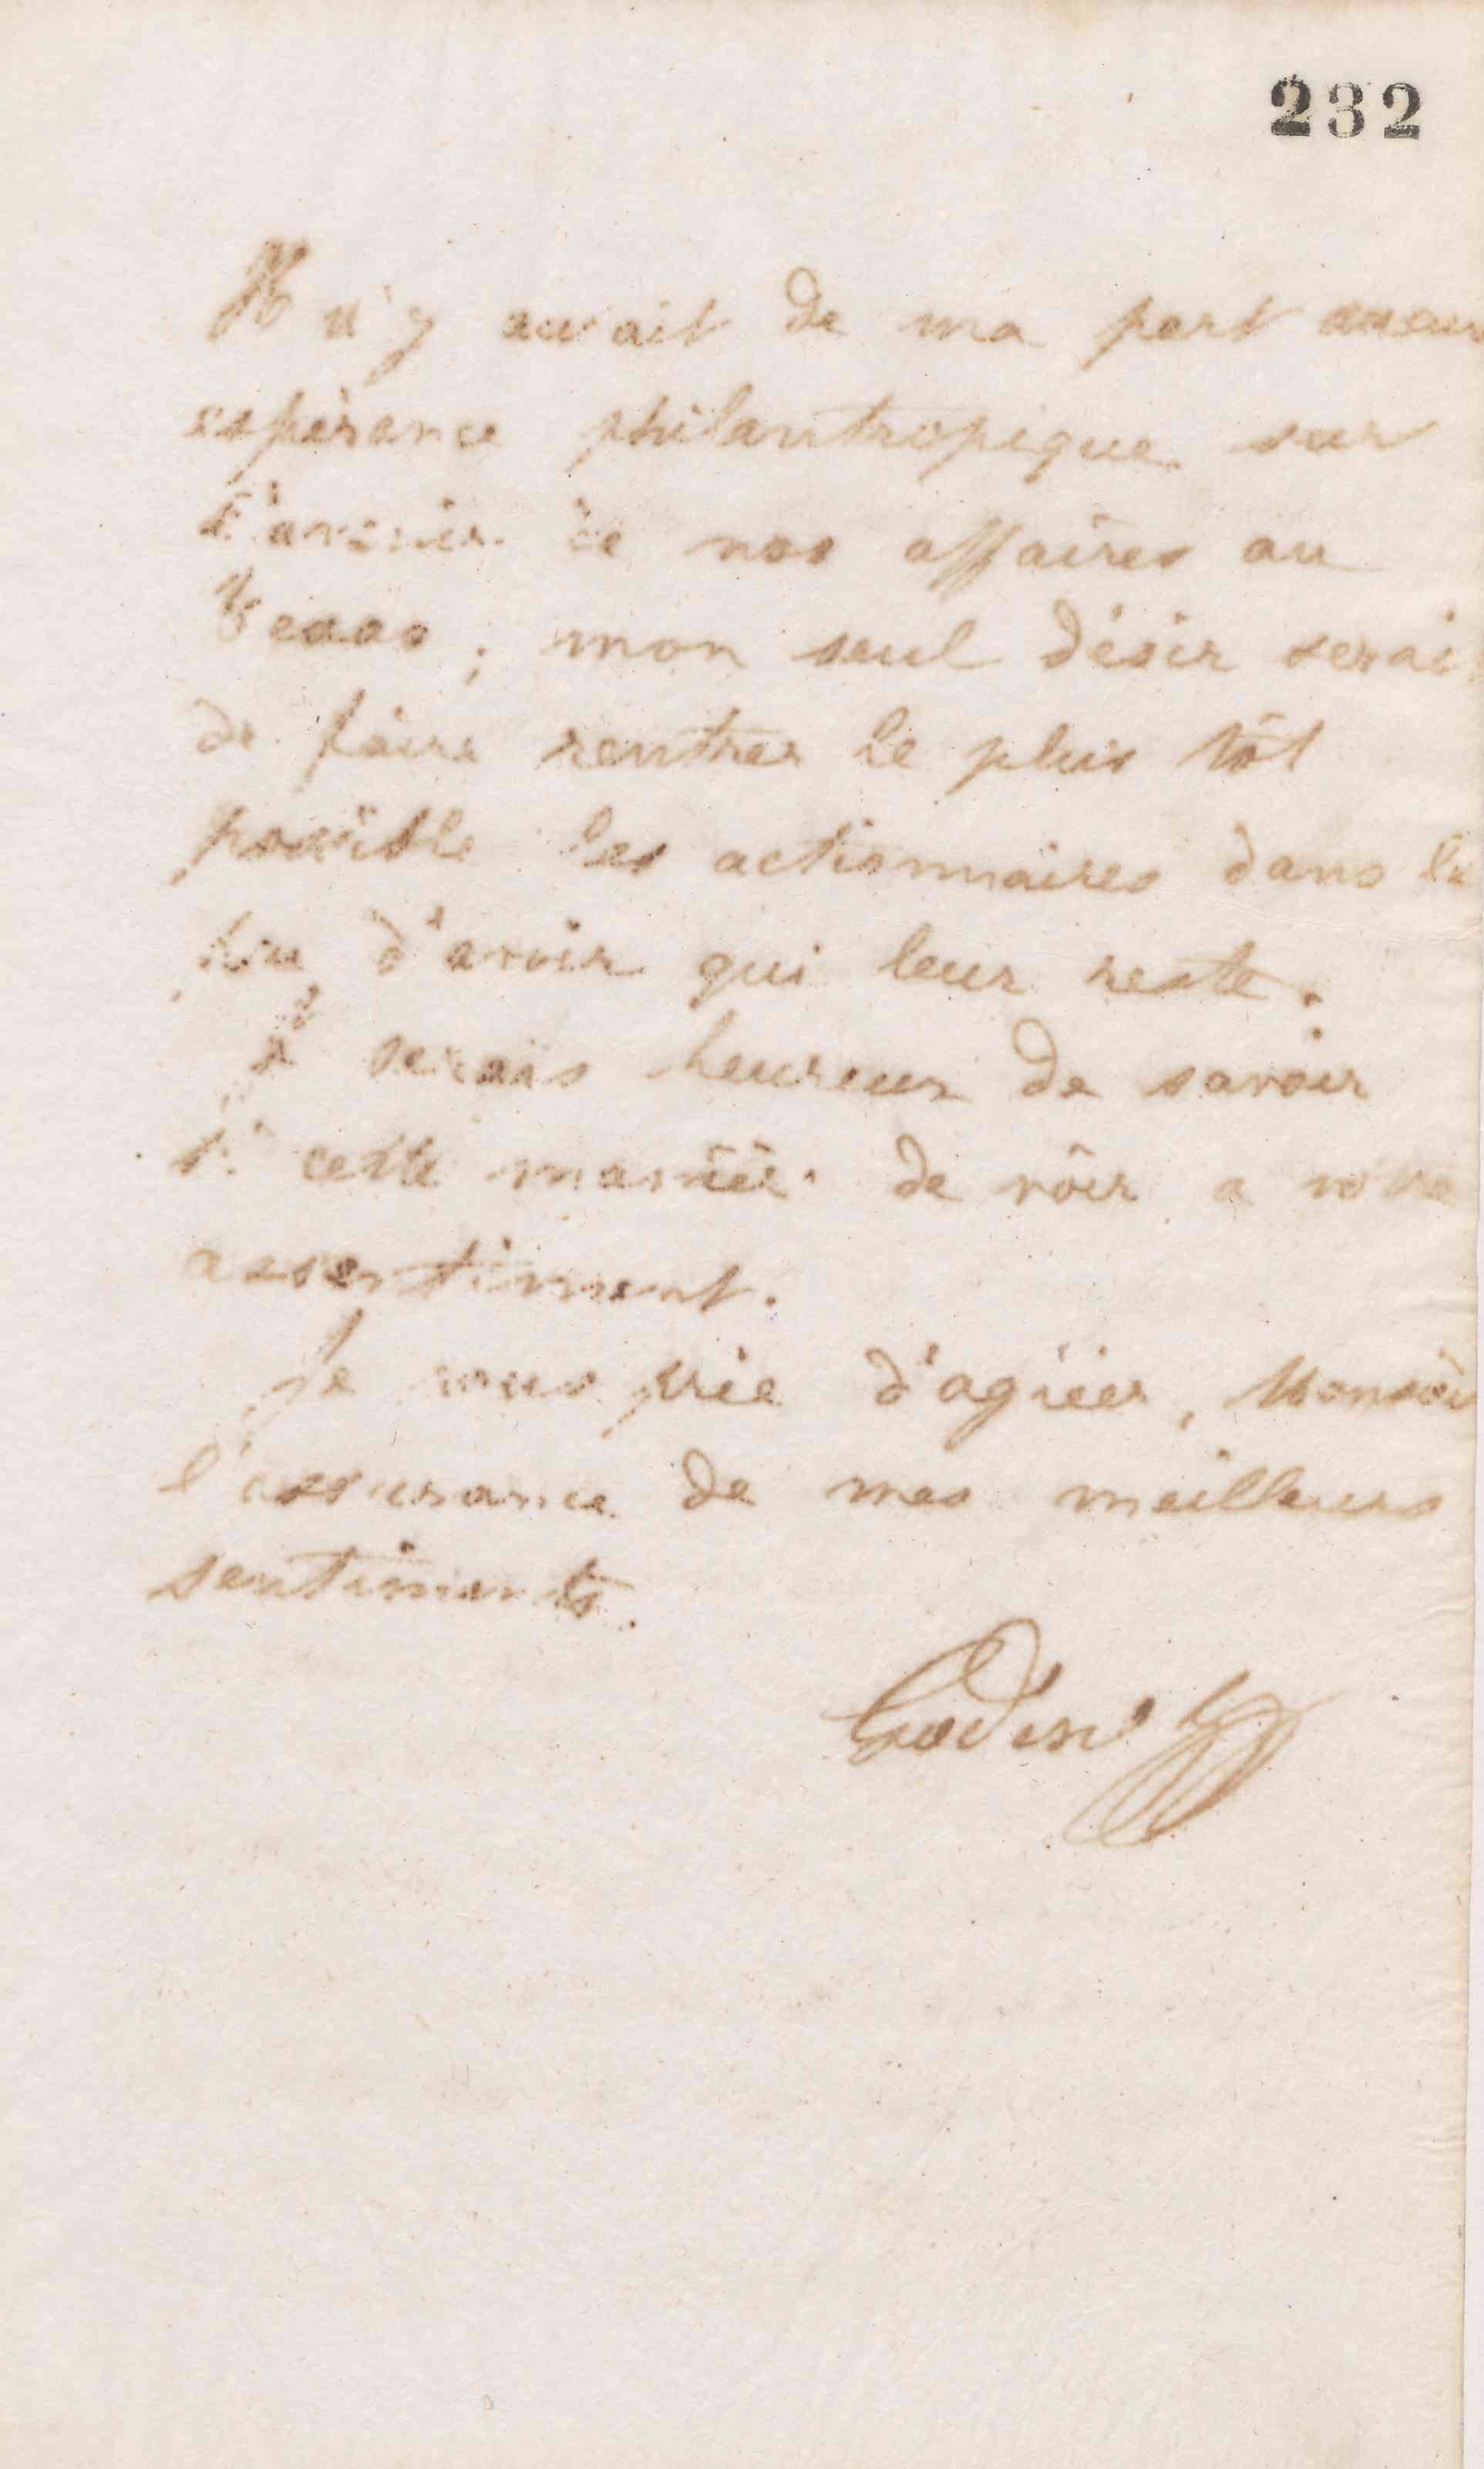 232
Il n'y avait de ma part aucu
espérance philantropique sur
l'avenir de nos affaires au
Texas ; mon seul désir serai
de faire rentrer le plus tôt
possible les actionnaires dans le
peu d'avoir qui leur reste.
Je serais heureux de savoir
si cette manière de voir a votre
assentiment.
Je vous prie d'agréer, Monsieu
l'assurance de mes meilleurs
sentiments.
Godin